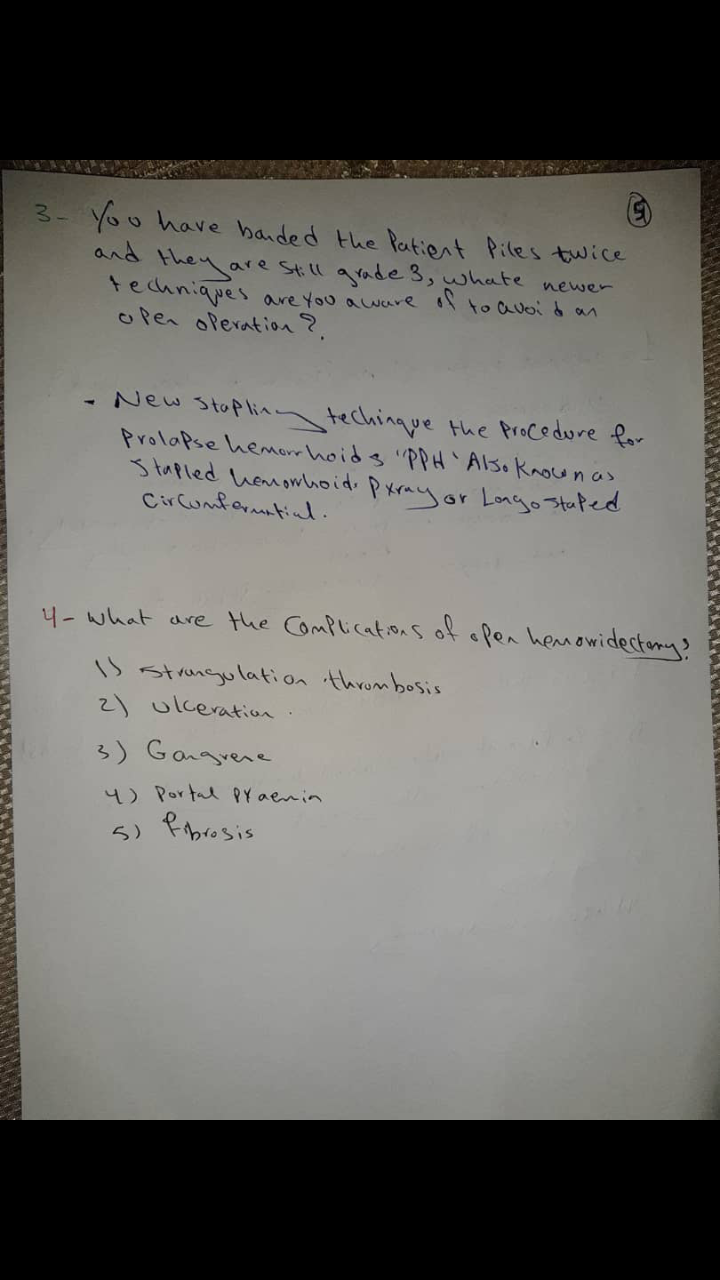 5
3- You have banded the Patient Piles twice
and they are still grade 3, whate newer
techniques are you aware of to avoid an
open operation?
- New stapling techinque the Procedure for
Prolapse hemorrhoids "PPH" Also Known as
Stapled hemorrhoids or Longo staped
Circumferential.
4- What are the Complications of open hemorridectomy?
1) strangulation thrombosis
2) ulceration.
3) Gangrene
4) Portal Pyaemia
5) fibrosis